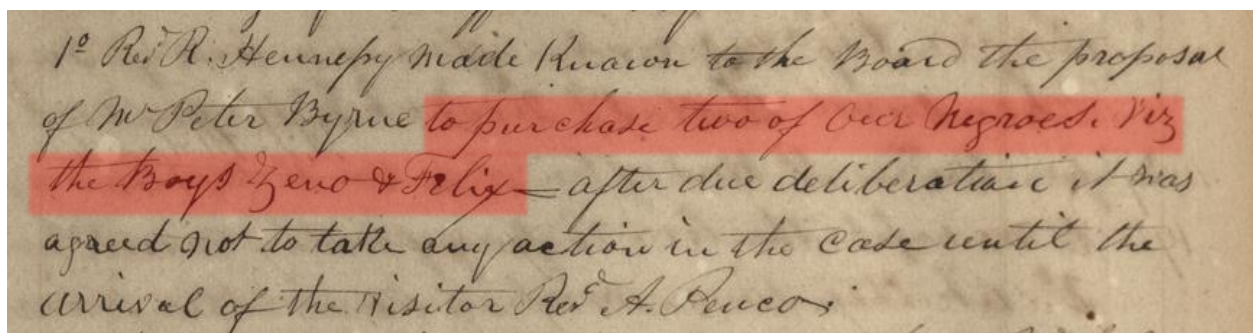 1º Revd R. Hennesy made Known to the Board the proposal
of Mr Peter Byrne to purchase two of our Negroes. Viz
the Boys Zeno & Felix = after due deliberation it was
agreed not to take any action in the case until the
arrival of the Visitor Revd A. Penco.